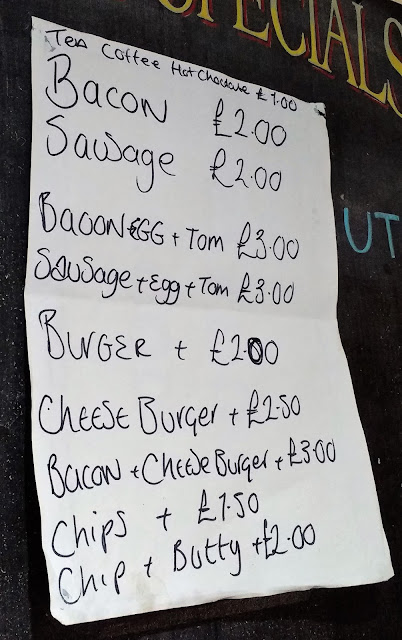 SPECIALS
Tea Coffee Hot Chocolate £1.00
BACON £2.00
SAUSAGE £2.00
BACON+EGG + TOM £3.00
SAUSAGE + Egg + TOM £3.00
BURGER + £2.00
CHEESE BURGER + £2.50
BACON + CHEESE BURGER + £3.00
CHIPS + £1.50
CHIP + BUTTY + £2.00
UT